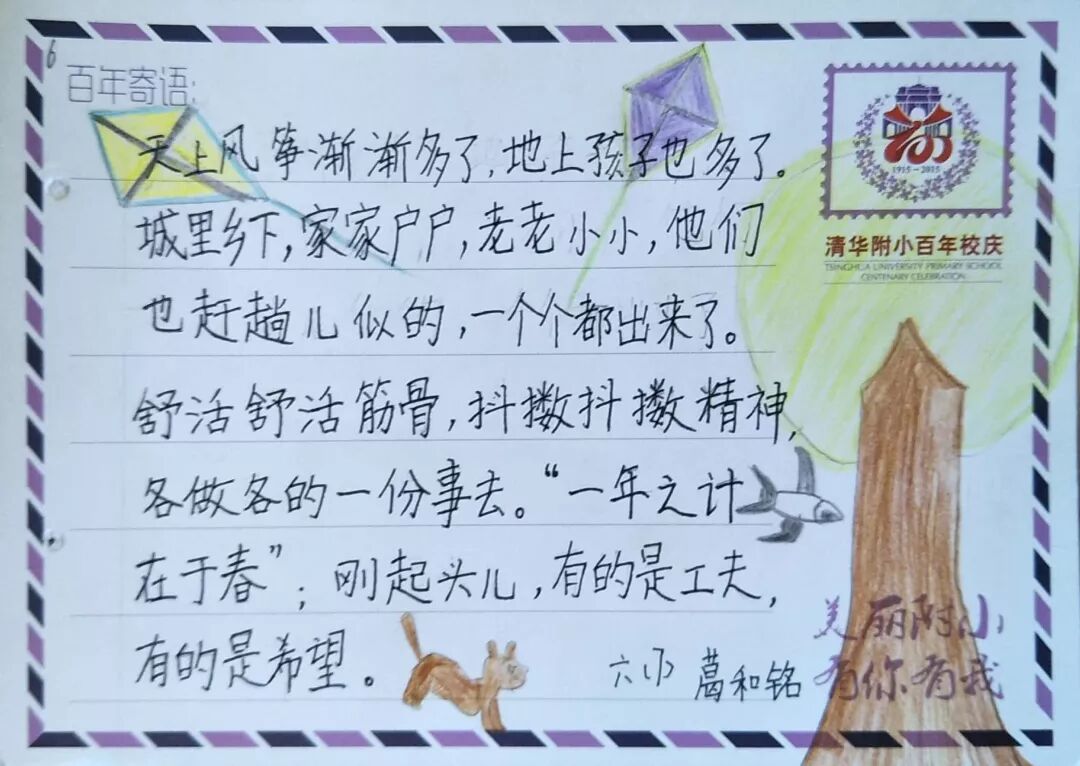 6
百年寄语：
天上风筝渐渐多了，地上孩子也多了。
城里乡下，家家户户，老老小小，他们
也赶趟儿似的，一个个都出来了。
舒活舒活筋骨，抖擞抖擞精神，
各做各的一份事去。“一年之计
在于春”；刚起头儿，有的是工夫，
有的是希望。
葛和铭
1915-2015
清华附小百年校庆
TSINGHUA UNIVERSITY PRIMARY SCHOOL
CENTENARY CELEBRATION
美丽附小
有你有我